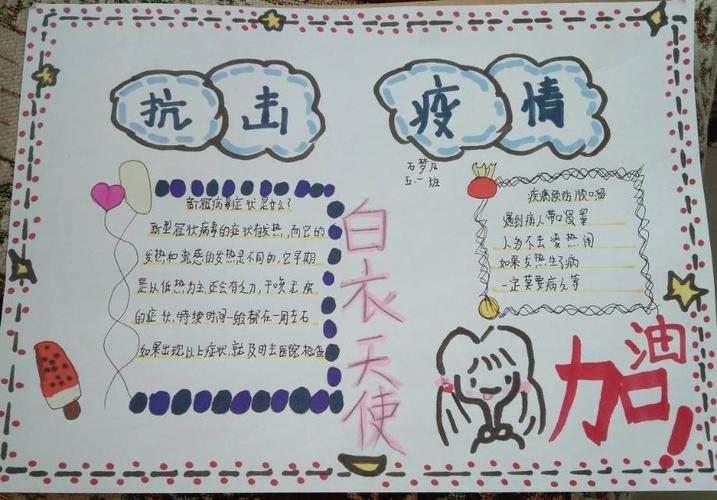 抗击疫情
石梦
五.一班
新冠病毒症状是什么?
新型冠状病毒的症状有发热,而它的
发热和流感的发热是不同的,它早期
是以低热为主,还会有乏力,干咳无痰
的症状,持续时间一般都在一周左右
如果出现以上症状,就及时去医院检查
白衣天使
疾病预防顺口溜
遇到病人带口罩
人多不去凑热闹
如果发热生了病
一定莫要病人等
加油!